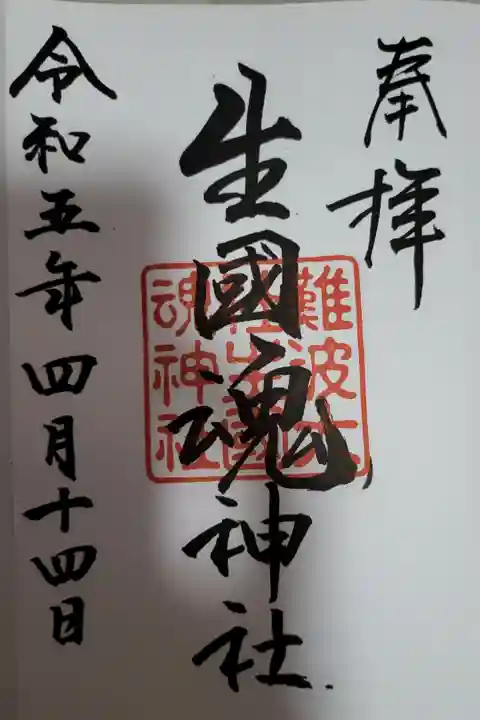 奉拝
生國魂神社
難波大
社生國
魂神社
令和五年四月十四日